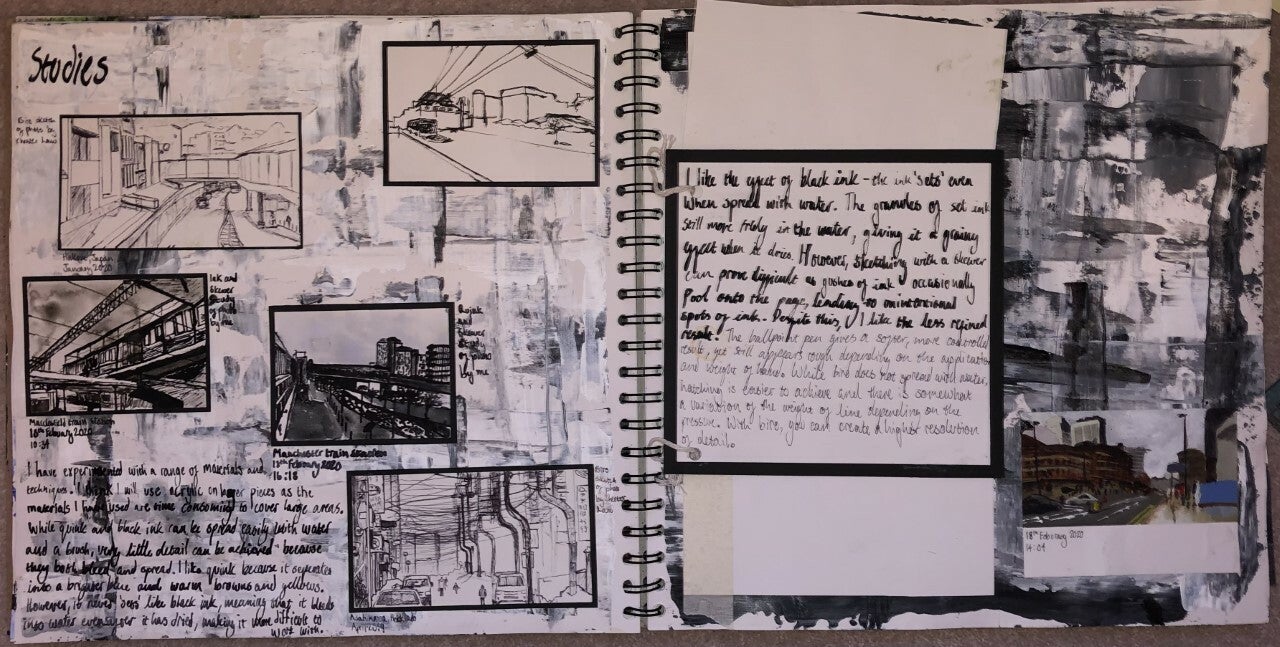 Studies
Biro sketch
of photo by
January 2020
Ink and
skewer
study
of photo
by me
Macclesfield train station
18th February 2020
10:34
Quink
and
skewer
study
of photo
by me
Manchester train
18th February 2020
16:18
I have experimented with a range of materials and
techniques. I think I will use acrylic on larger pieces as the
materials I have used are time consuming to cover large areas.
While quink and black ink can be spread easily with water
and a brush, very little detail can be achieved because
they both bleed and spread. I like quink because it separates
into a brighter blue and warm browns and yellows.
However, it never sets like black ink, meaning that it bleeds
into water even after it has dried, making it more difficult to
work with.
Biro
April 2019
I like the effect of black ink - the ink 'sets' even
when spread with water. The granules of set ink
still move freely in the water, giving it a grainy
effect when it dries. However, sketching with a skewer
can prove difficult as gushes of ink occasionally
pool onto the page, leading to unintentional
spots of ink. Despite this, I like the less refined
result. The ballpoint pen gives a softer, more controlled
result, yet still appears rough depending on the application
and weight of hand. Whilst biro does not spread with water,
hatching is easier to achieve and there is somewhat
a variation of the weight of line depending on the
pressure. With biro, you can create a higher resolution
of detail.
18th February 2020
14:04